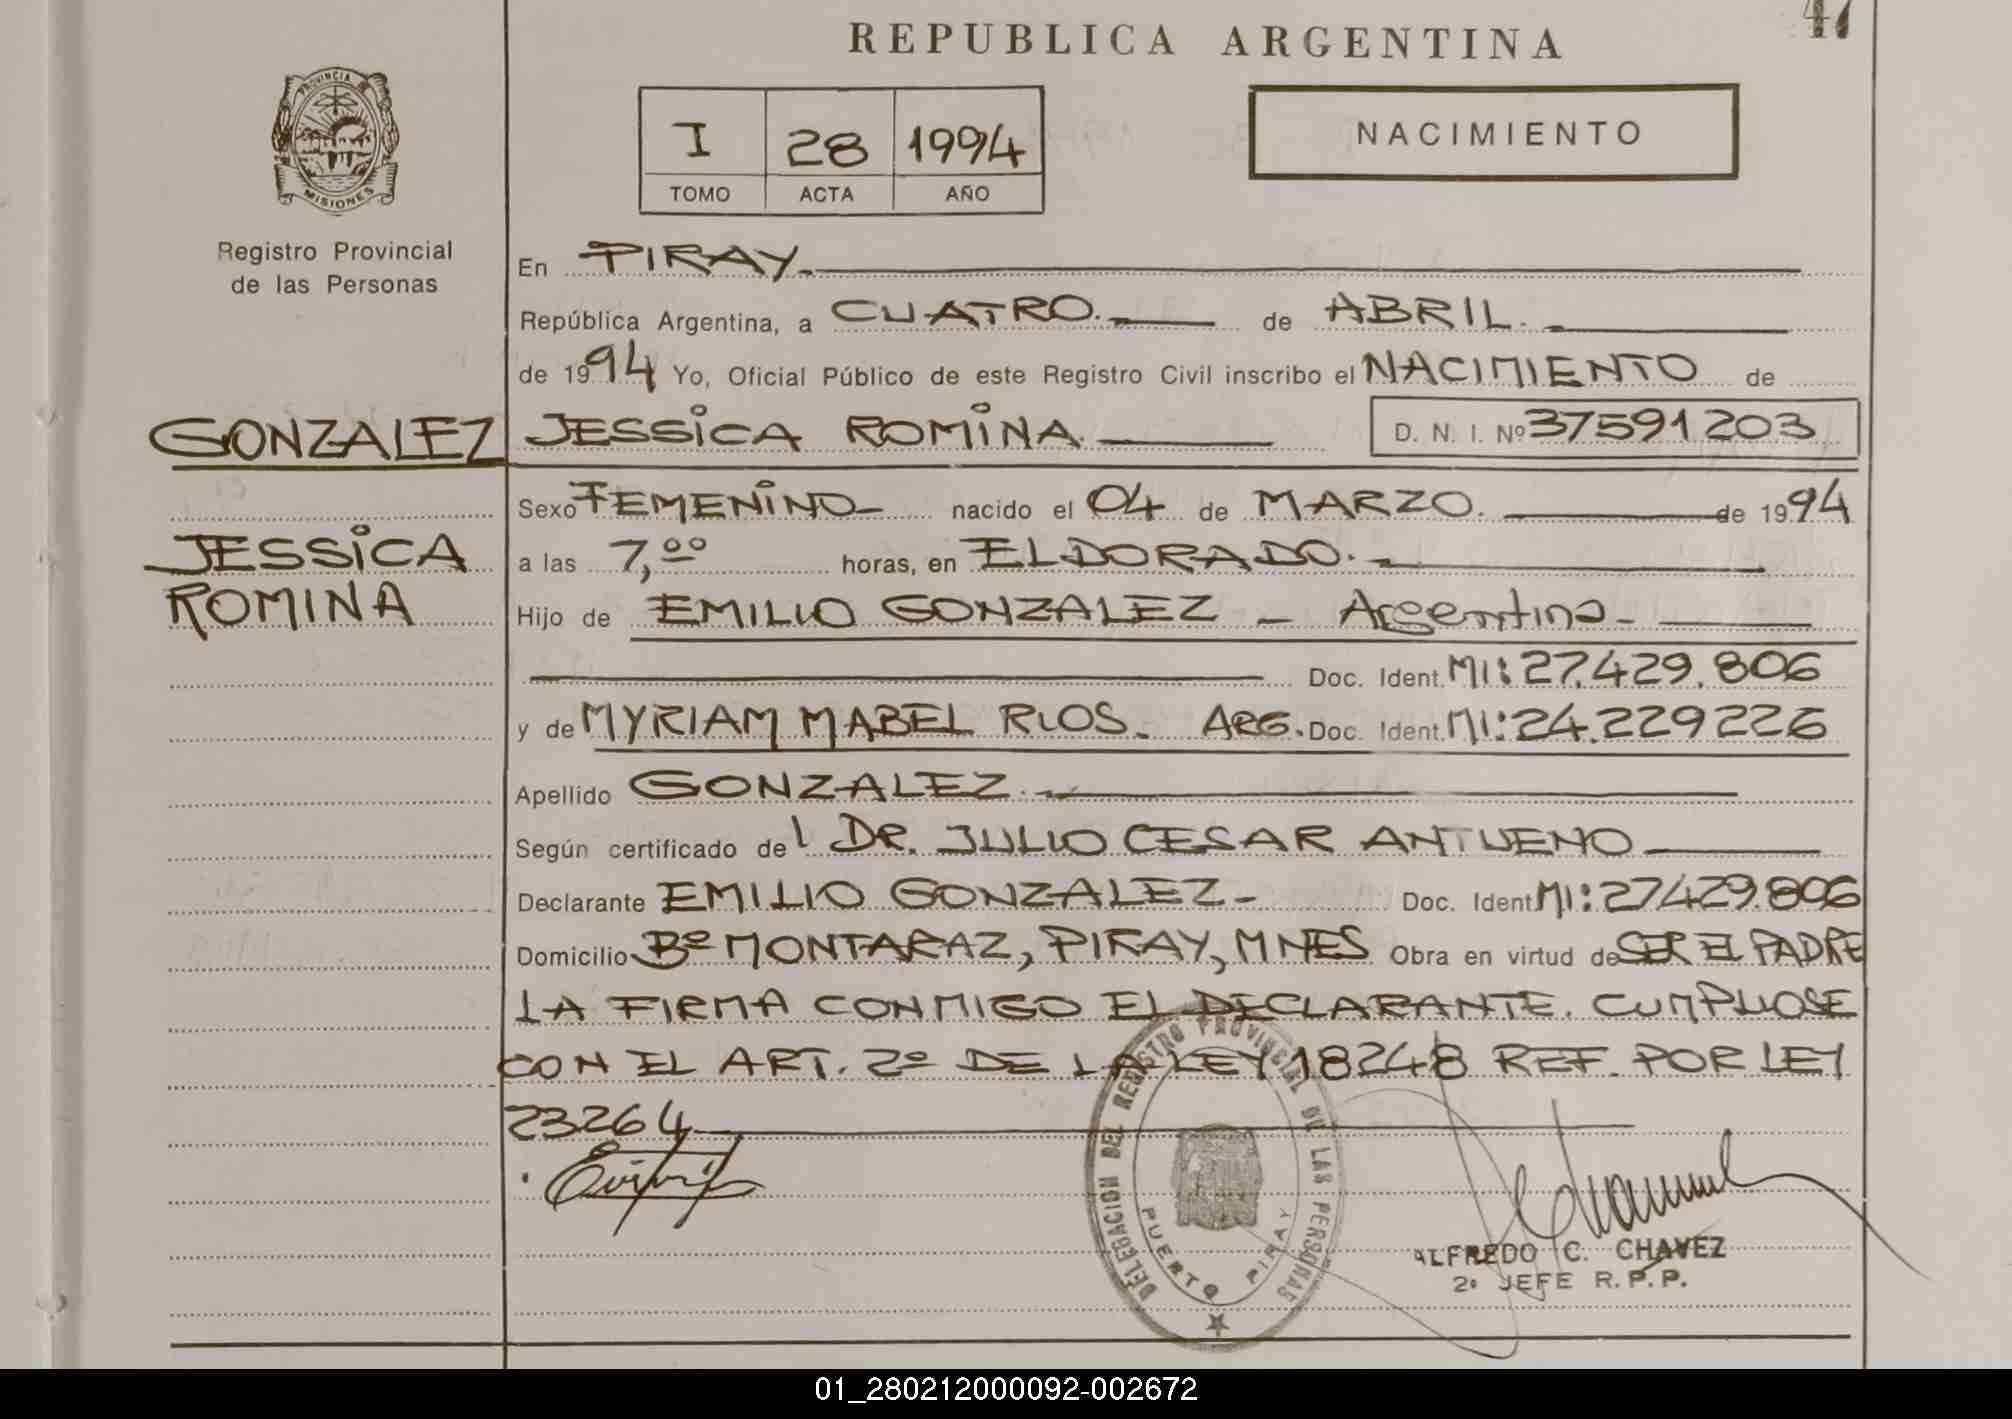 REPUBLICA ARGENTINA
47
PROVINCIA DE
MISIONES
Registro Provincial
de las Personas
I 28 1994
TOMO ACTA AÑO
NACIMIENTO
En PIRAY.
República Argentina, a CUATRO. de ABRIL.
de 1994 Yo, Oficial Público de este Registro Civil inscribo el NACIMIENTO de
GONZALEZ JESSICA ROMINA. D. N. I. Nº 37591203
Sexo FEMENINO nacido el 04 de MARZO. de 1994
JESSICA
ROMINA
a las 7,00 horas, en ELDORADO.
Hijo de EMILIO GONZALEZ - Argentino-
Doc. Ident. MI: 27.429.806
y de MYRIAM MABEL RIOS. ARG. Doc. Ident. MI: 24.229226
Apellido GONZALEZ.
Según certificado del DR. JULIO CESAR ANTUENO
Declarante EMILIO GONZALEZ- Doc. Ident MI: 27429.806
Domicilio Bº MONTARAZ, PIRAY, MNES Obra en virtud de SER EL PADRE
LA FIRMA CONMIGO EL DECLARANTE. CUMPLIOSE
CON EL ART. 2º DE LA LEY 18248 REF. POR LEY
23264
DELEGACION DEL REGISTRO PROVINCIAL DE LAS PERSONAS
PUERTO PIRAY
ALFREDO C. CHAVEZ
2º JEFE R.P.P.
01_280212000092-002672